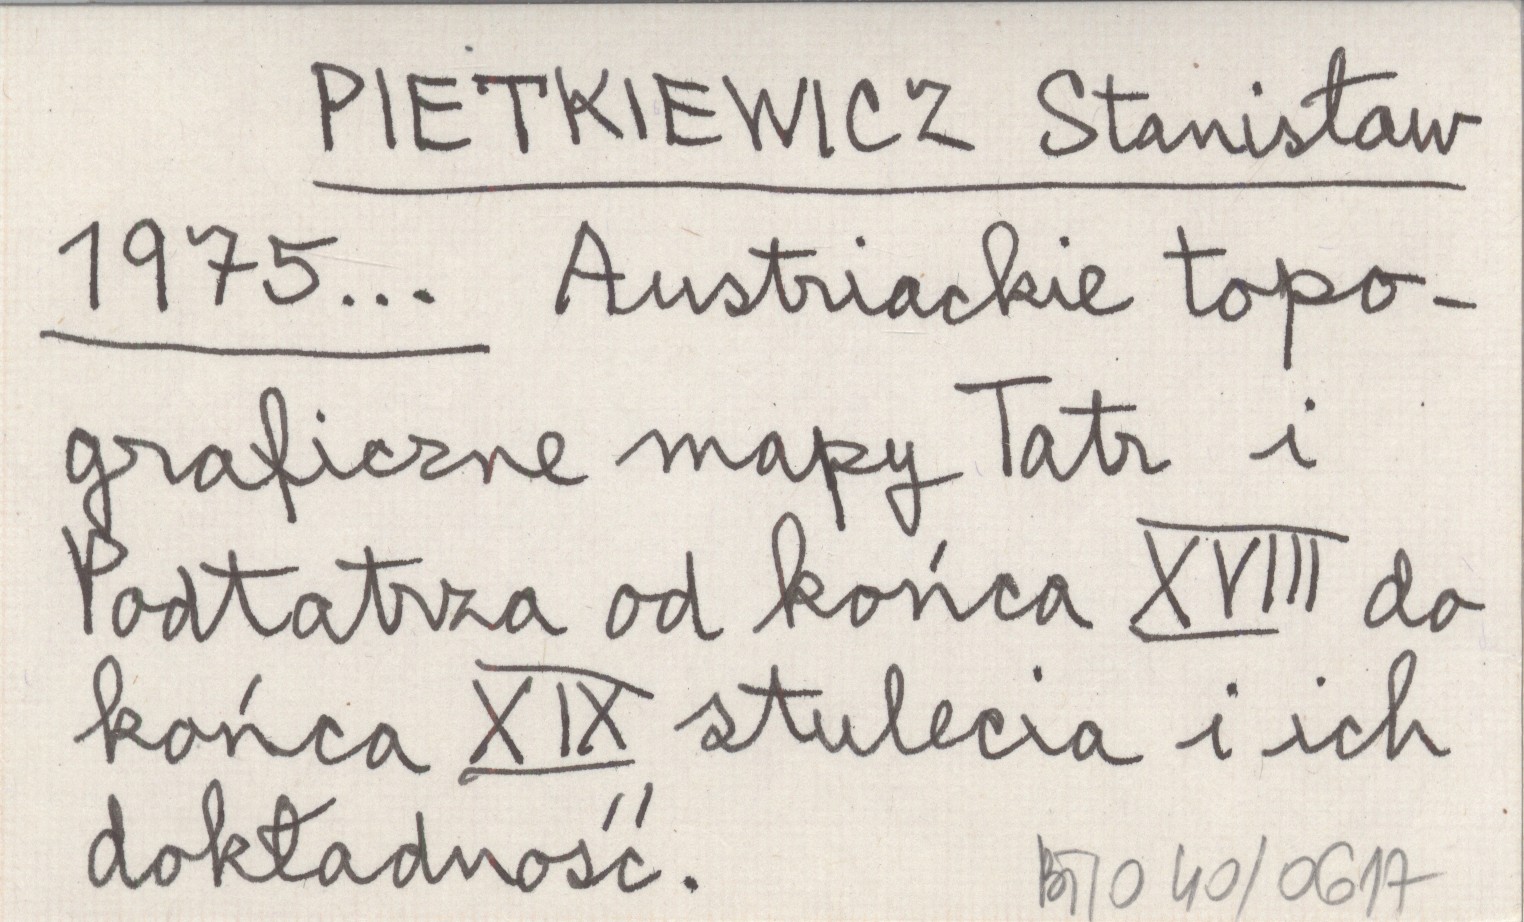 PIETKIEWICZ Stanisław
1975... Austriackie topo-
graficzne mapy Tatr i
Podtatrza od końca XVIII do
końca XIX stulecia i ich
dokładność.
40/0617